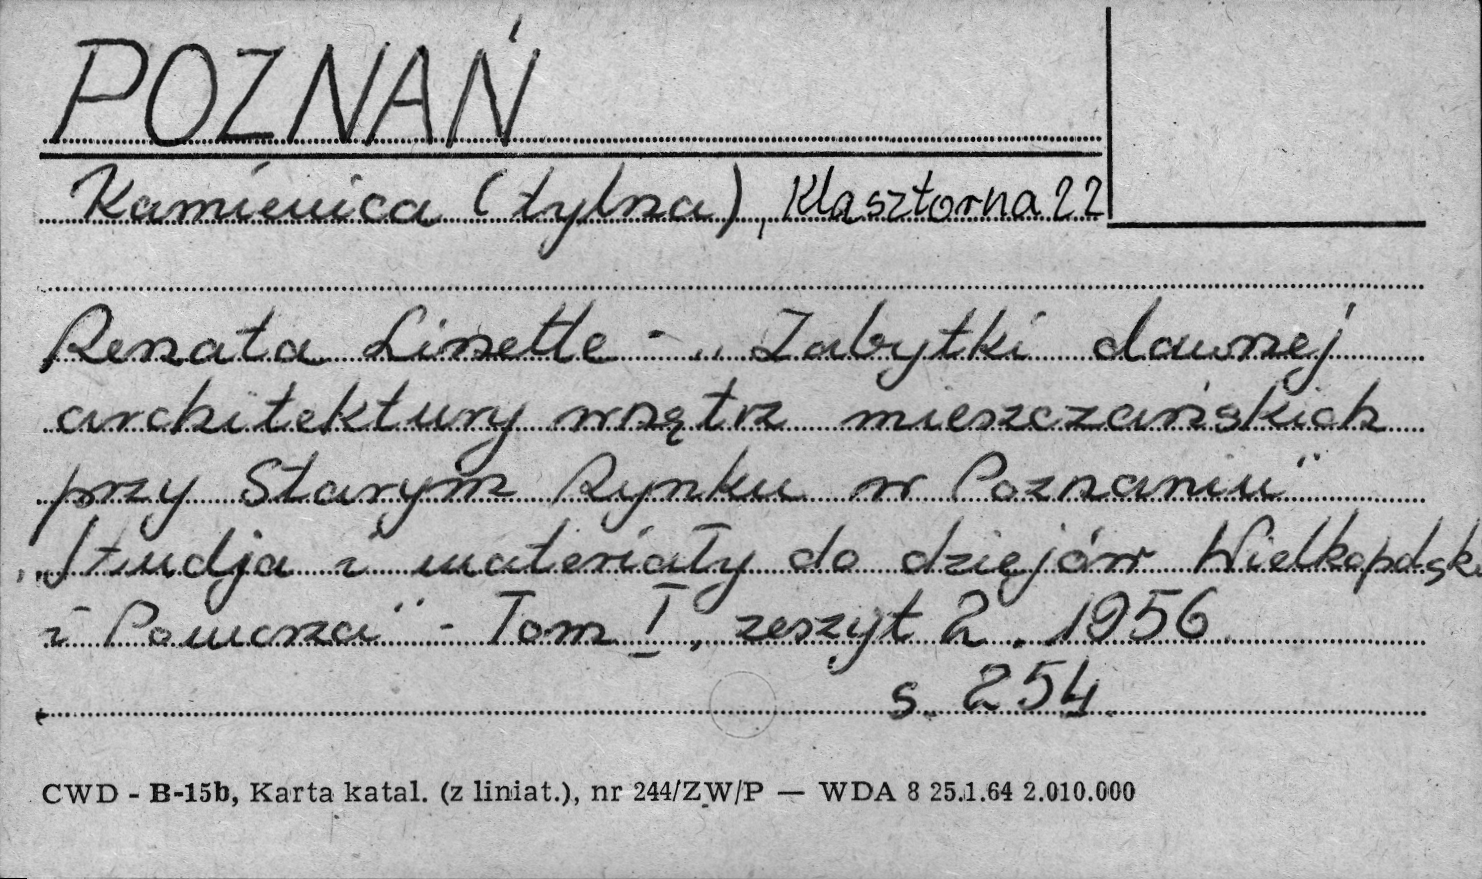 POZNAŃ
Kamienica (tylna), Klasztorna 22
Renata Linette - „Zabytki dawnej
architektury wnętrz mieszczańskich
przy Starym Rynku w Poznaniu"
„Studja i materiały do dziejów Wielkopolski
i Pomorza" - Tom I, zeszyt 2. 1956
s. 254
CWD - B-15b, Karta katal. (z liniat.), nr 244/ZW/P — WDA 8 25.1.64 2.010.000